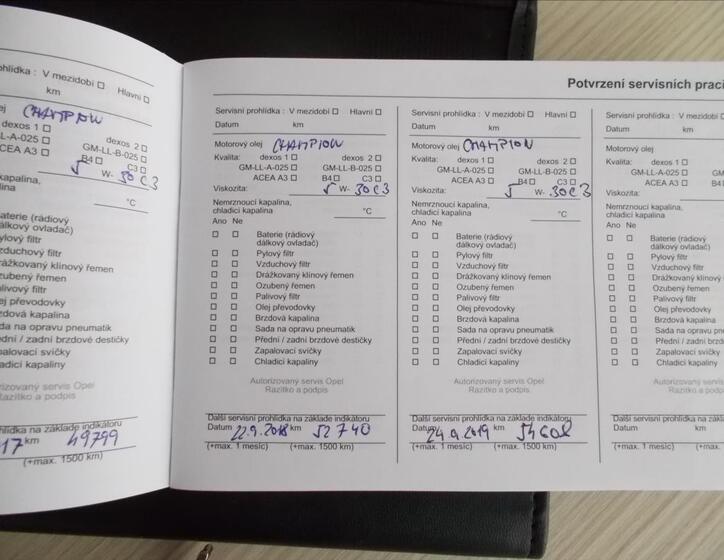 ohlídka : V mezidobí Hlavní
km
ej CHAMPION
dexos 1 dexos 2
GM-LL-A-025 GM-LL-B-025
ACEA A3 B4 C3
5 W- 30 C3
kapalina,
alina °C
Baterie (rádiový
dálkový ovladač)
Pylový filtr
Vzduchový filtr
Drážkovaný klínový řemen
Ozubený řemen
Palivový filtr
Olej převodovky
Brzdová kapalina
Sada na opravu pneumatik
řední / zadní brzdové destičky
Zapalovací svíčky
Chladicí kapaliny
orizovaný servis Opel
Razítko a podpis
hlídka na základě indikátoru
17 km 49799
(+max. 1500 km)
Potvrzení servisních prací
Servisní prohlídka : V mezidobí Hlavní
Datum km
Motorový olej CHAMPION
Kvalita: dexos 1 dexos 2
GM-LL-A-025 GM-LL-B-025
ACEA A3 B4 C3
Viskozita: 5 W- 30 C3
Nemrznoucí kapalina,
chladicí kapalina °C
Ano Ne
Baterie (rádiový
dálkový ovladač)
Pylový filtr
Vzduchový filtr
Drážkovaný klínový řemen
Ozubený řemen
Palivový filtr
Olej převodovky
Brzdová kapalina
Sada na opravu pneumatik
Přední / zadní brzdové destičky
Zapalovací svíčky
Chladicí kapaliny
Autorizovaný servis Opel
Razítko a podpis
Další servisní prohlídka na základě indikátoru
Datum 22.9.2018 km 52740
(+max. 1 měsíc) (+max. 1500 km)
Servisní prohlídka : V mezidobí Hlavní
Datum km
Motorový olej CHAMPION
Kvalita: dexos 1 dexos 2
GM-LL-A-025 GM-LL-B-025
ACEA A3 B4 C3
Viskozita: 5 W- 30 C3
Nemrznoucí kapalina,
chladicí kapalina °C
Ano Ne
Baterie (rádiový
dálkový ovladač)
Pylový filtr
Vzduchový filtr
Drážkovaný klínový řemen
Ozubený řemen
Palivový filtr
Olej převodovky
Brzdová kapalina
Sada na opravu pneumatik
Přední / zadní brzdové destičky
Zapalovací svíčky
Chladicí kapaliny
Autorizovaný servis Opel
Razítko a podpis
Další servisní prohlídka na základě indikátoru
Datum 24.9.2019 km
(+max. 1 měsíc) (+max. 1500 km)
Servisní prohlídka : V mezidobí
Datum km
Motorový olej
Kvalita: dexos 1
GM-LL-A-025 GM
ACEA A3
Viskozita:
Nemrznoucí kapalina,
chladicí kapalina
Ano Ne
Baterie (rádiový
dálkový ovladač)
Pylový filtr
Vzduchový filtr
Drážkovaný klínový
Ozubený řemen
Palivový filtr
Olej převodovky
Brzdová kapalina
Sada na opravu pne
Přední / zadní brzdo
Zapalovací svíčky
Chladicí kapaliny
Autorizovaný servis
Razítko a podp
Další servisní prohlídka na základě
Datum km
(+max. 1 měsíc) (+ma